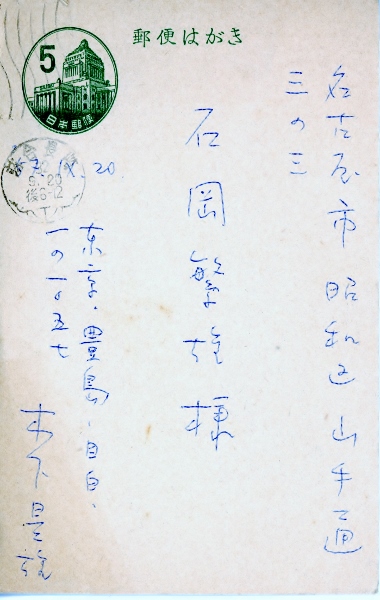 郵便はがき
5
日本郵便
名古屋市昭和区山手通
三の三
石岡繁雄様
20.
東京・豊島・目白、
一の一〇五七
木下是雄
後6-12